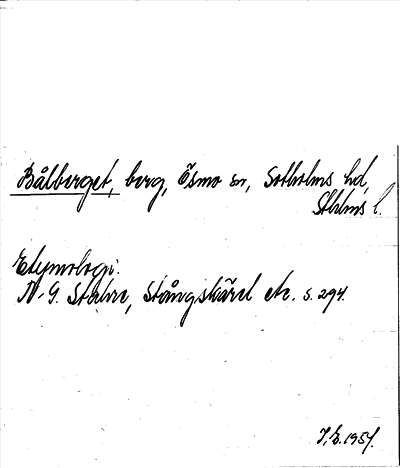 Bålberget, berg, Ösmo sn, Sotholms hd,
Sthlms l.
Etymologi.
N.-G. Stahre, Stångskäret etc. s. 294.
I.E. 1957.